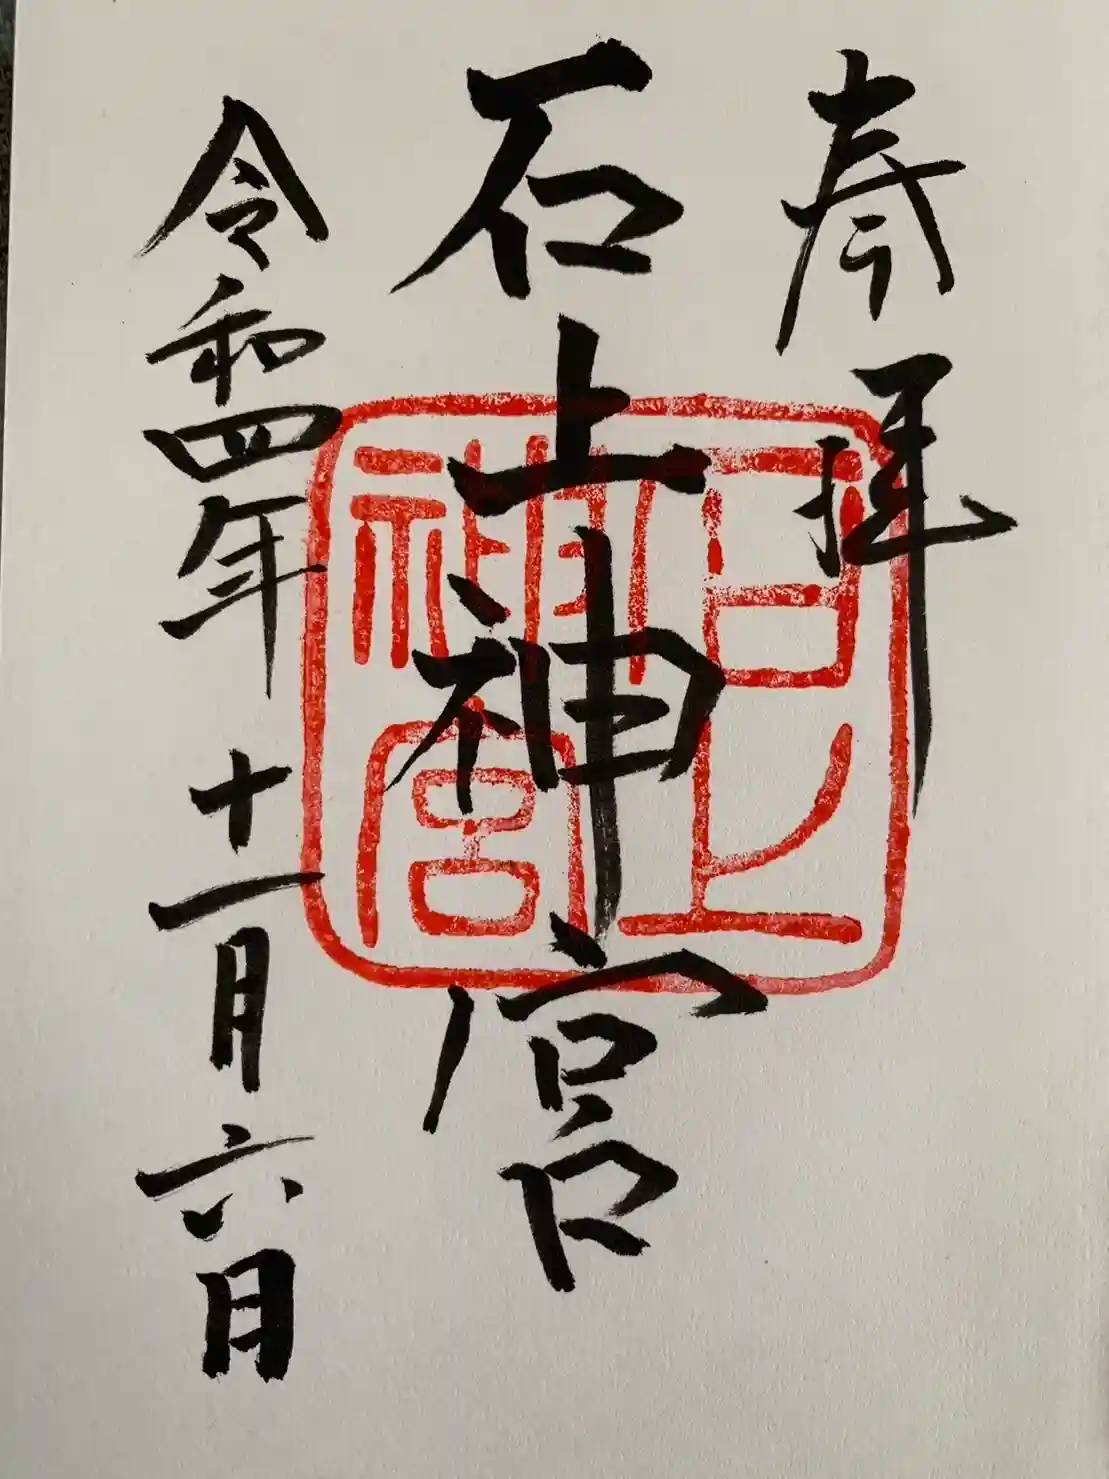 奉拝
石上神宮
令和四年十一月六日
石上
神宮